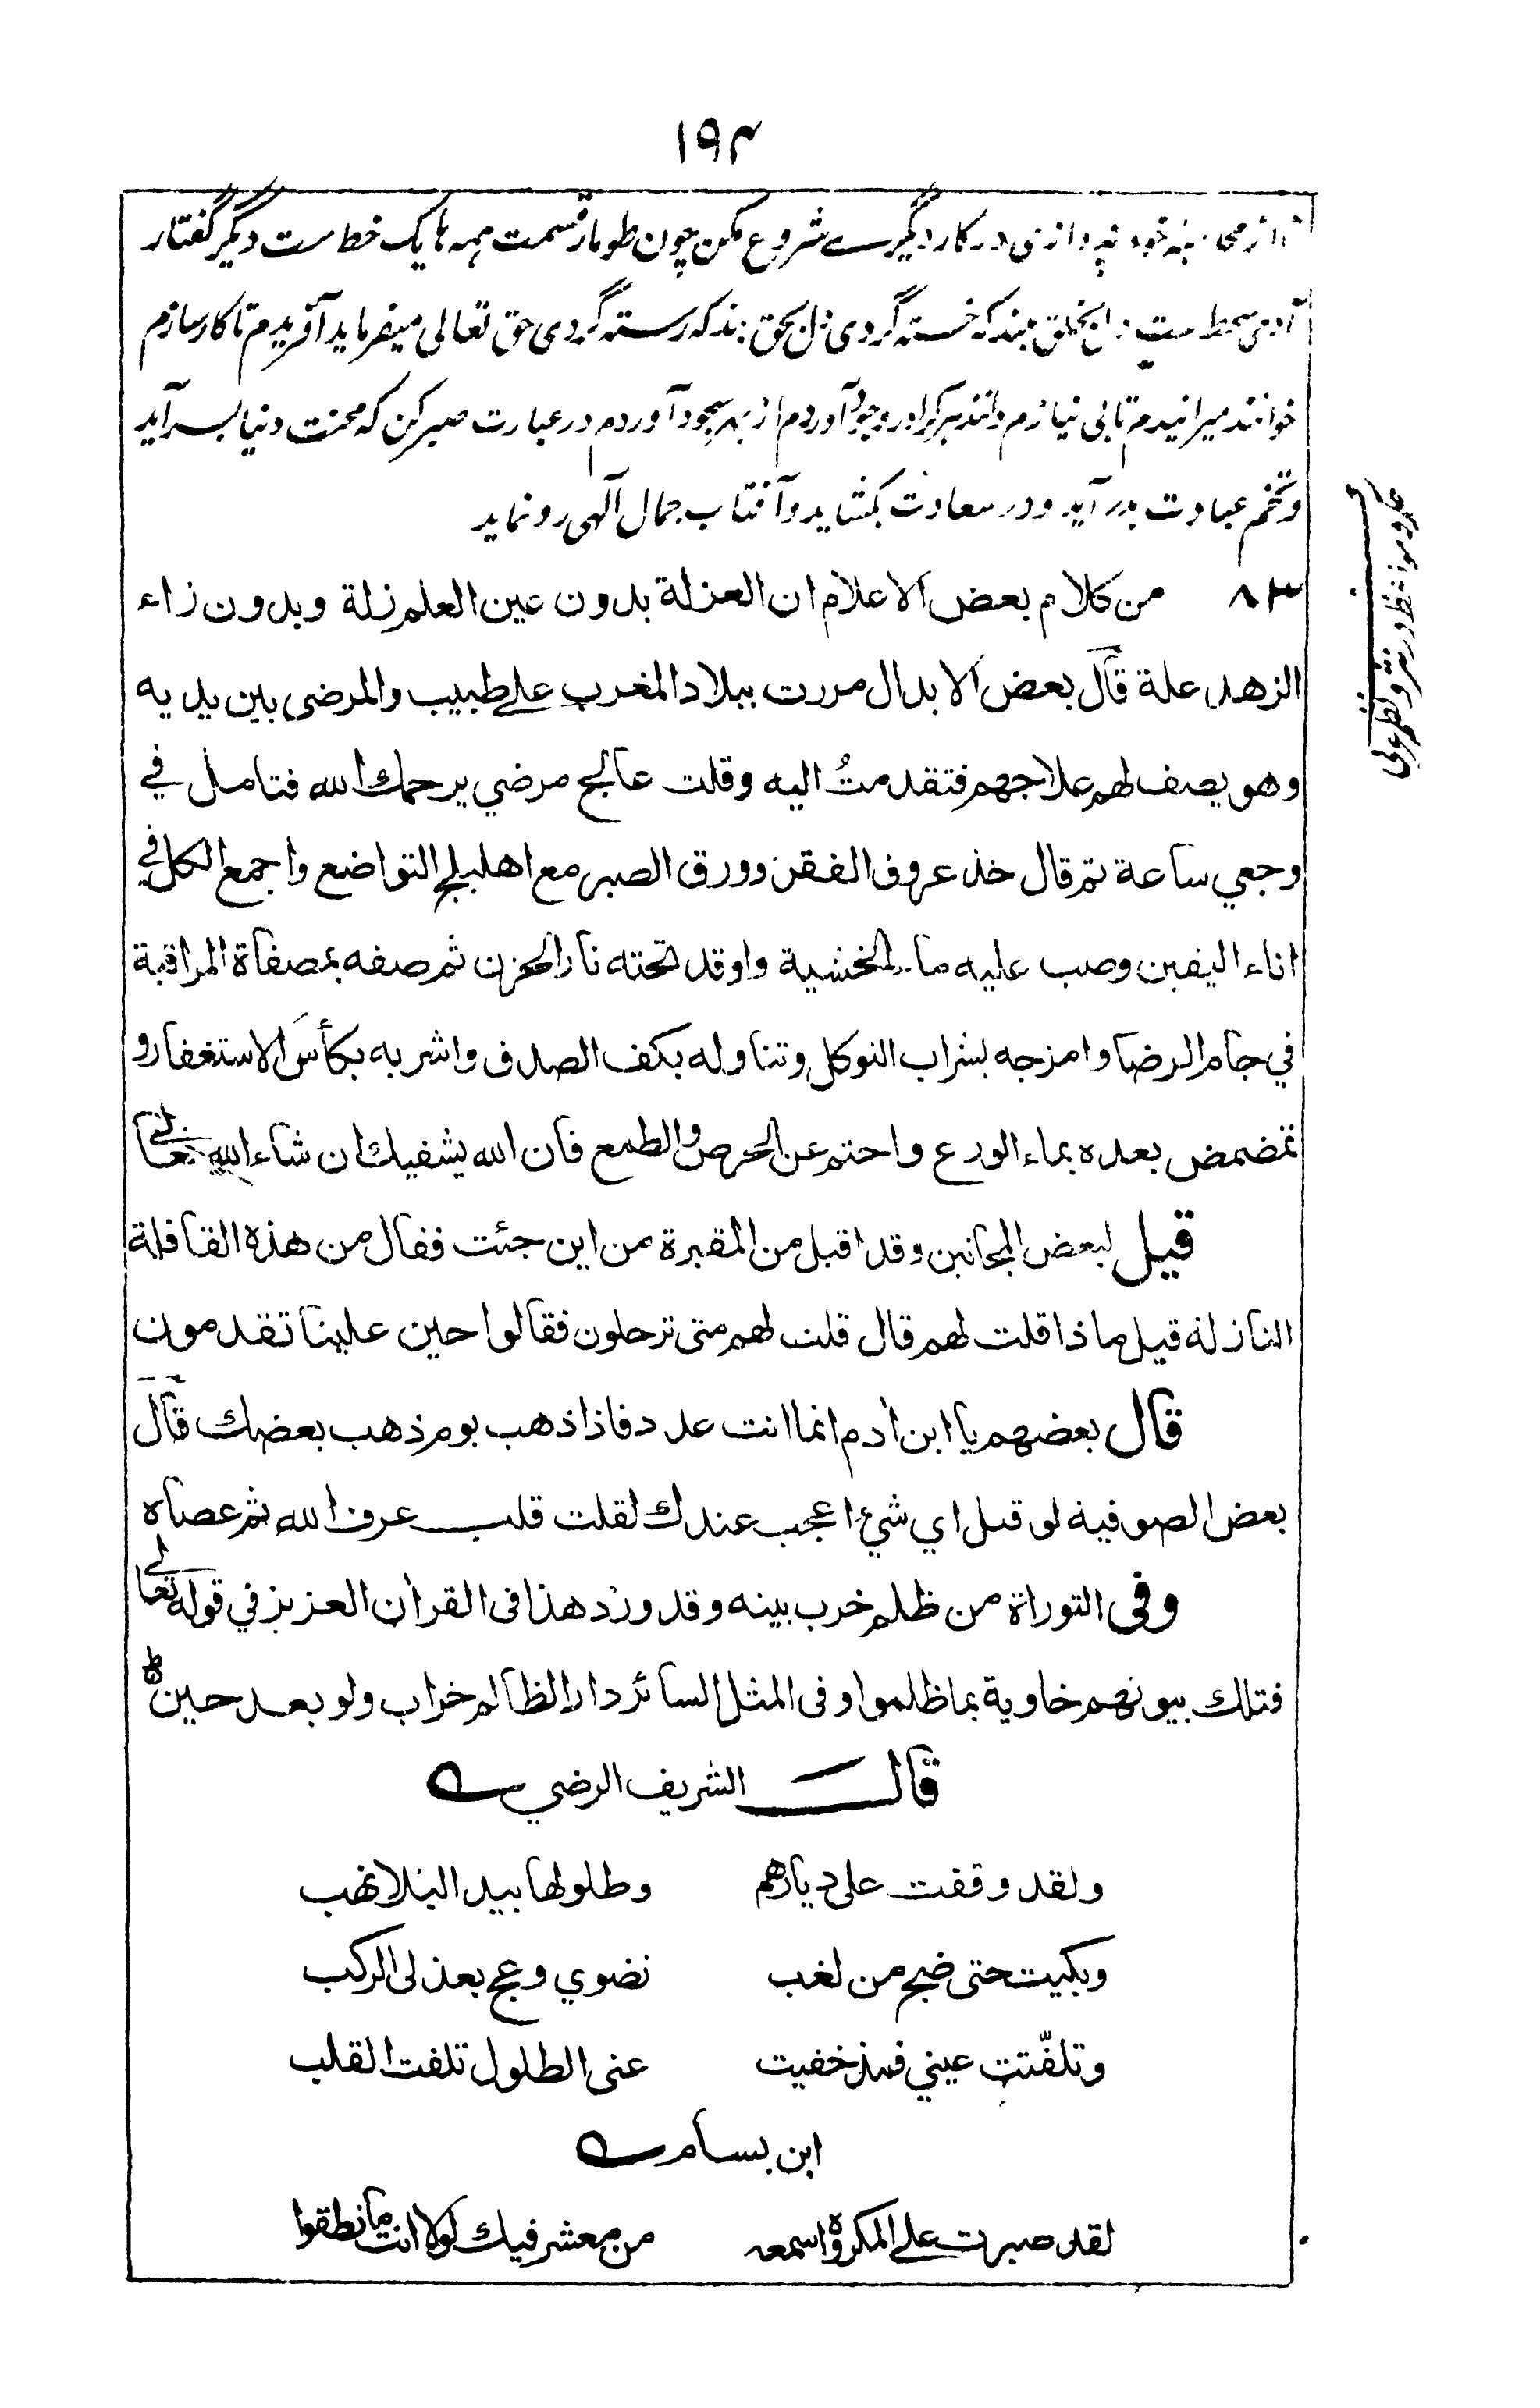 ۱۹۴
در کار دیگرے شروع مکن چون طومار قسمت ہمہ ہا یک خط ست دیگر گفتار
خستہ گردی دل بحق بند کہ رستہ گردی حق تعالی میفرماید آفریدم تا کار سازم
خوانند میرانیدم تا بی نیازم دانند ہر کرا در وجود آوردم از بہر سجود آوردم در عبارت صبر کن کہ محنت دنیا بسر آید
وتخم عبادت بدر آید ودر سعادت بکشاید وآفتاب جمال آلہی رو نماید
۸۳ من كلام بعض الاعلام ان العزلة بدون عين العلم زلة وبدون زاء
الزهد علة قال بعض الابدال مررت ببلاد المغرب علے طبيب والمرضى بين يديه
وهو يصف لهم علاجهم فتقدمتُ اليه وقلت عالج مرضي يرحمك الله فتامل في
وجهي ساعة ثم قال خذ عروق الفقر وورق الصبر مع اهليلج التواضع واجمع الكل في
اناء اليقين وصب عليه ماء الخشية واوقد تحته نار الحزن ثم صفه بمصفاة المراقبة
في جام الرضا وامزجه بشراب التوكل وتناوله بكف الصدق واشربه بكأس الاستغفار و
تمضمض بعده بماء الورع واحتم عن الحرص والطمع فان الله يشفيك ان شاء الله تعالے
قيل لبعض المجانين وقد اقبل من المقبرة من اين جئت فقال من هذه القافلة
النازلة قيل ماذا قلت لهم قال قلت لهم متى ترحلون فقالوا حين علينا تقدمون
قال بعضهم يا ابن أدم انما انت عدد فاذا ذهب يوم ذهب بعضك قال
بعض الصوفية لو قيل اي شيء اعجب عندك لقلت قلب عرف الله ثم عصاه
وفى التوراة من ظلم خرب بيته وقد ورد هذا فى القرأن العزيز في قوله تعالے
فتلك بيوتهم خاوية بما ظلموا وفى المثل السائر دار الظالم خراب ولو بعد حين ط
قال الشريف الرضي
ولقد وقفت على ديارهم وطلولها بيد البلا نهب
وبكيت حتى ضج من لغب نضوي وعج بعذلى الركب
وتلفّتت عيني فمذ خفيت عنى الطلول تلفت القلب
ابن بسام
لقد صبرت علے المكروه اسمعه من معشر فيك لولا انت ما نطقوا
در نثر و نظم عربی